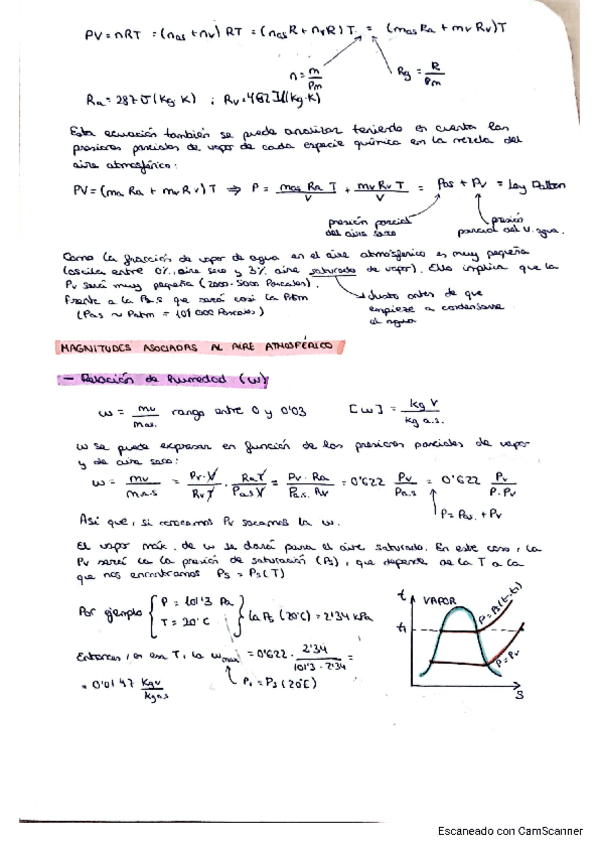 PV = nRT = (nas + nv) RT = (nas R + nv R) T = (mas Ra + mv Rv) T
n = m/Pm    Rg = R/Pm
Ra = 287 J/(Kg·K) ; Rv = 462 J/(Kg·K)
Esta ecuación también se puede analizar teniendo en cuenta las
presiones parciales de vapor de cada especie química en la mezcla del
aire atmosférico:
PV = (ma Ra + mv Rv) T ⇒ P = mas Ra T / V + mv Rv T / V = Pas + Pv = Ley Dalton
presión parcial del aire seco
presión parcial del v. agua.
Como la fracción de vapor de agua en el aire atmosférico es muy pequeña
(oscila entre 0%, aire seco y 3% aire saturado de vapor). Ello implica que la
Pv será muy pequeña (2000-5000 Pascales).
Frente a la Pa.s que será casi la Patm
(Pas ~ Patm = 101 000 Pascales)
justo antes de que
empiece a condensarse
el agua
MAGNITUDES ASOCIADAS AL AIRE ATMOSFÉRICO
- Relación de humedad (w)
w = mv/mas. rango entre 0 y 0'03    [w] = kg V / kg a.s.
w se puede expresar en función de las presiones parciales de vapor
y de aire seco:
w = mv/ma.s = Pv·V/RvT · RaT/PasV = Pv·Ra/Pa.s. Rv = 0'622 Pv/Pa.s = 0'622 Pv/P-Pv
P = Pas. + Pv
Así que, si conocemos Pv sacamos la w.
El vapor máx. de w se dará para el aire saturado. En este caso, la
Pv será la presión de saturación (Ps), que depende de la T a la
que nos encontramos Ps = Ps(T)
Por ejemplo { P = 101'3 Pa
T = 20°C } la Ps (20°C) = 2'34 kPa
Entonces, en esa T, la wmax = 0'622 · 2'34 / 101'3 - 2'34 =
= 0'0147 Kgv/kga.s
Pv = Ps (20°C)
t
VAPOR
t1
P = Ps(t=t1)
P = Pv
S
Escaneado con CamScanner